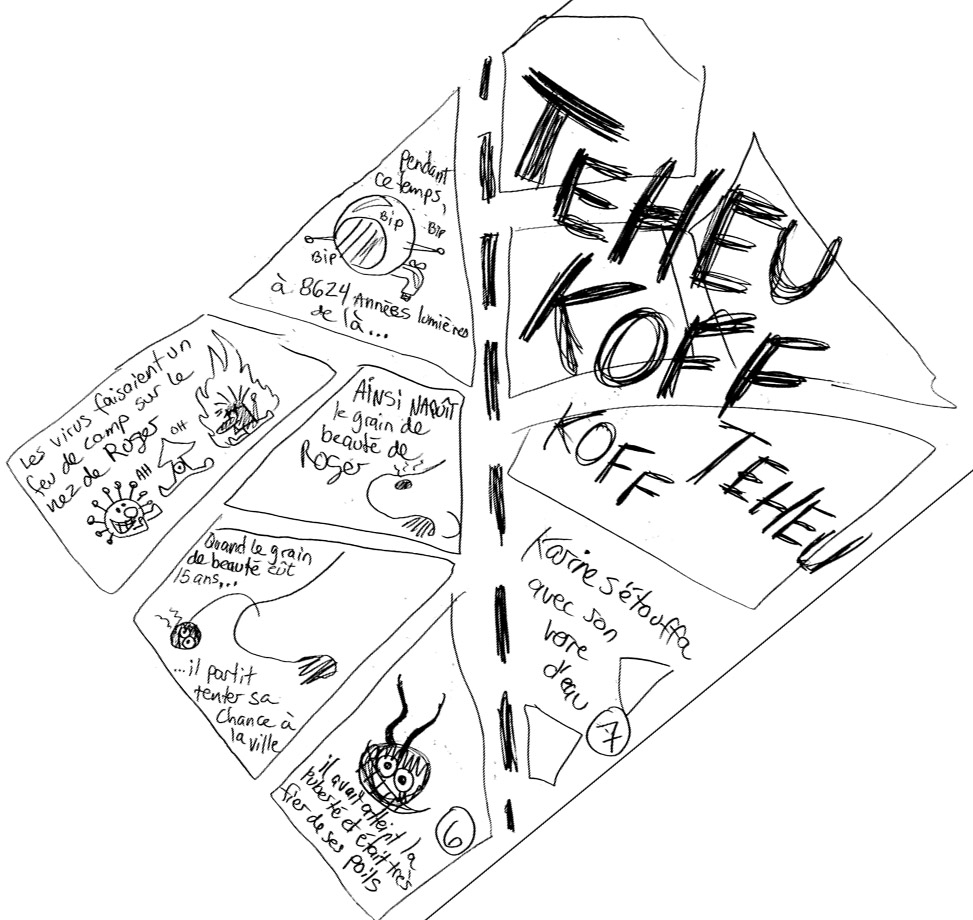 pendant
ce temps,
BIP
BIP
BIP
à 8624 ANNÉES lumières
de là...
Les virus faisaient un
feu de camp sur le
nez de Roger
OH
AH
AINSI NAQUÎT
le grain de
beauté de
Roger
Quand le grain
de beauté eût
15 ans,...
...il partit
tenter sa
chance à
la ville
il avait atteint la
puberté et était très
fier de ses poils
6
TEHEU
KOFF
KOFF
TEHEU
Karine s'étouffa
avec son
verre
d'eau
7